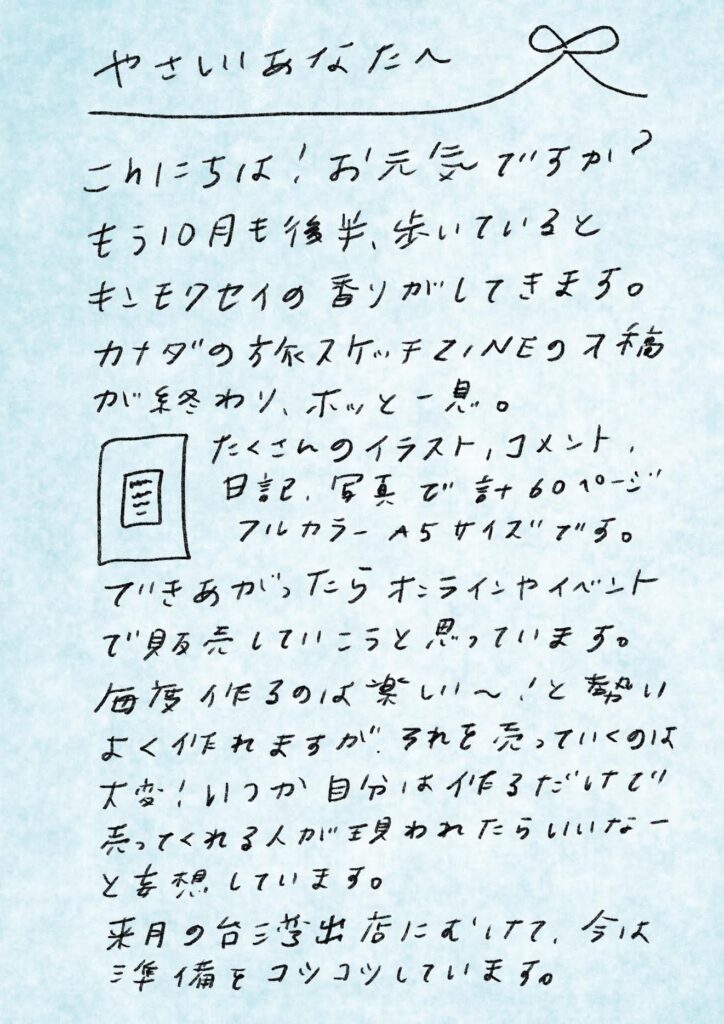 やさしいあなたへ
こんにちは！お元気ですか？
もう10月も後半、歩いていると
キンモクセイの香りがしてきます。
カナダの旅スケッチZINEの入稿
が終わり、ホッと一息。
たくさんのイラスト、コメント、
日記、写真で計60ページ
フルカラーA5サイズです。
できあがったらオンラインやイベント
で販売していこうと思っています。
毎度作るのは楽しい〜！と勢い
よく作れますが、それを売っていくのは
大変！いつか自分は作るだけで
売ってくれる人が現われたらいいなー
と妄想しています。
来月の台湾出店にむけて、今は
準備をコツコツしています。